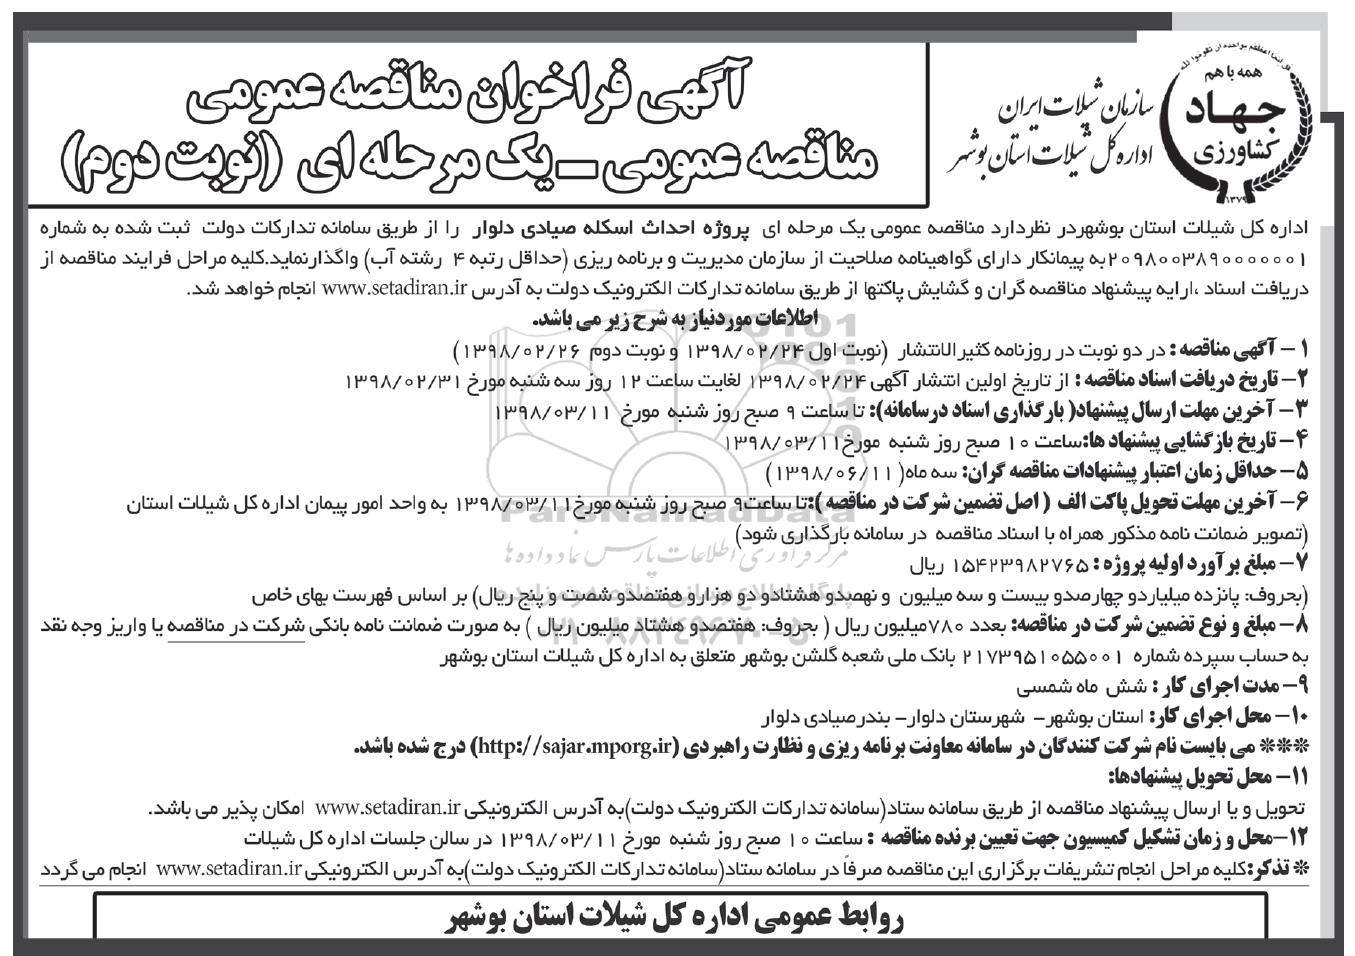 قل انما اعظکم بواحده ان تقوموا لله
همه با هم
جهاد
کشاورزی
۱۳۷۹
سازمان شیلات ایران
اداره کل شیلات استان بوشهر
آگهی فراخوان مناقصه عمومی
مناقصه عمومی – یک مرحله ای (نوبت دوم)
اداره کل شیلات استان بوشهردر نظردارد مناقصه عمومی یک مرحله ای پروژه احداث اسکله صیادی دلوار را از طریق سامانه تدارکات دولت ثبت شده به شماره
۲۰۹۸۰۰۳۸۹۰۰۰۰۰۰۱به پیمانکار دارای گواهینامه صلاحیت از سازمان مدیریت و برنامه ریزی (حداقل رتبه ۴ رشته آب) واگذارنماید.کلیه مراحل فرایند مناقصه از
دریافت اسناد ،ارایه پیشنهاد مناقصه گران و گشایش پاکتها از طریق سامانه تدارکات الکترونیک دولت به آدرس www.setadiran.ir انجام خواهد شد.
اطلاعات موردنیاز به شرح زیر می باشد.
۱- آگهی مناقصه : در دو نوبت در روزنامه کثیرالانتشار (نوبت اول ۱۳۹۸/۰۲/۲۴ و نوبت دوم ۱۳۹۸/۰۲/۲۶)
۲- تاریخ دریافت اسناد مناقصه : از تاریخ اولین انتشار آگهی ۱۳۹۸/۰۲/۲۴ لغایت ساعت ۱۲ روز سه شنبه مورخ ۱۳۹۸/۰۲/۳۱
۳- آخرین مهلت ارسال پیشنهاد( بارگذاری اسناد درسامانه): تا ساعت ۹ صبح روز شنبه مورخ ۱۳۹۸/۰۳/۱۱
۴- تاریخ بازگشایی پیشنهاد ها:ساعت ۱۰ صبح روز شنبه مورخ۱۳۹۸/۰۳/۱۱
۵- حداقل زمان اعتبار پیشنهادات مناقصه گران: سه ماه( ۱۳۹۸/۰۶/۱۱)
۶- آخرین مهلت تحویل پاکت الف ( اصل تضمین شرکت در مناقصه ):تا ساعت۹ صبح روز شنبه مورخ۱۳۹۸/۰۳/۱۱ به واحد امور پیمان اداره کل شیلات استان
(تصویر ضمانت نامه مذکور همراه با اسناد مناقصه در سامانه بارگذاری شود)
۷- مبلغ برآورد اولیه پروژه : ۱۵۴۲۳۹۸۲۷۶۵ ریال
(بحروف: پانزده میلیاردو چهارصدو بیست و سه میلیون و نهصدو هشتادو دو هزارو هفتصدو شصت و پنج ریال) بر اساس فهرست بهای خاص
۸- مبلغ و نوع تضمین شرکت در مناقصه: بعدد ۷۸۰میلیون ریال ( بحروف: هفتصدو هشتاد میلیون ریال ) به صورت ضمانت نامه بانکی شرکت در مناقصه یا واریز وجه نقد
به حساب سپرده شماره ۲۱۷۳۹۵۱۰۵۵۰۰۱ بانک ملی شعبه گلشن بوشهر متعلق به اداره کل شیلات استان بوشهر
۹- مدت اجرای کار : شش ماه شمسی
۱۰- محل اجرای کار: استان بوشهر- شهرستان دلوار- بندرصیادی دلوار
*** می بایست نام شرکت کنندگان در سامانه معاونت برنامه ریزی و نظارت راهبردی (http://sajar.mporg.ir) درج شده باشد.
۱۱- محل تحویل پیشنهادها:
تحویل و یا ارسال پیشنهاد مناقصه از طریق سامانه ستاد(سامانه تدارکات الکترونیک دولت)به آدرس الکترونیکی www.setadiran.ir امکان پذیر می باشد.
۱۲-محل و زمان تشکیل کمیسیون جهت تعیین برنده مناقصه : ساعت ۱۰ صبح روز شنبه مورخ ۱۳۹۸/۰۳/۱۱ در سالن جلسات اداره کل شیلات
* تذکر:کلیه مراحل انجام تشریفات برگزاری این مناقصه صرفاً در سامانه ستاد(سامانه تدارکات الکترونیک دولت)به آدرس الکترونیکی www.setadiran.ir انجام می گردد
روابط عمومی اداره کل شیلات استان بوشهر
ParsNamadData
مرکز فرآوری اطلاعات پارس نماد داده ها